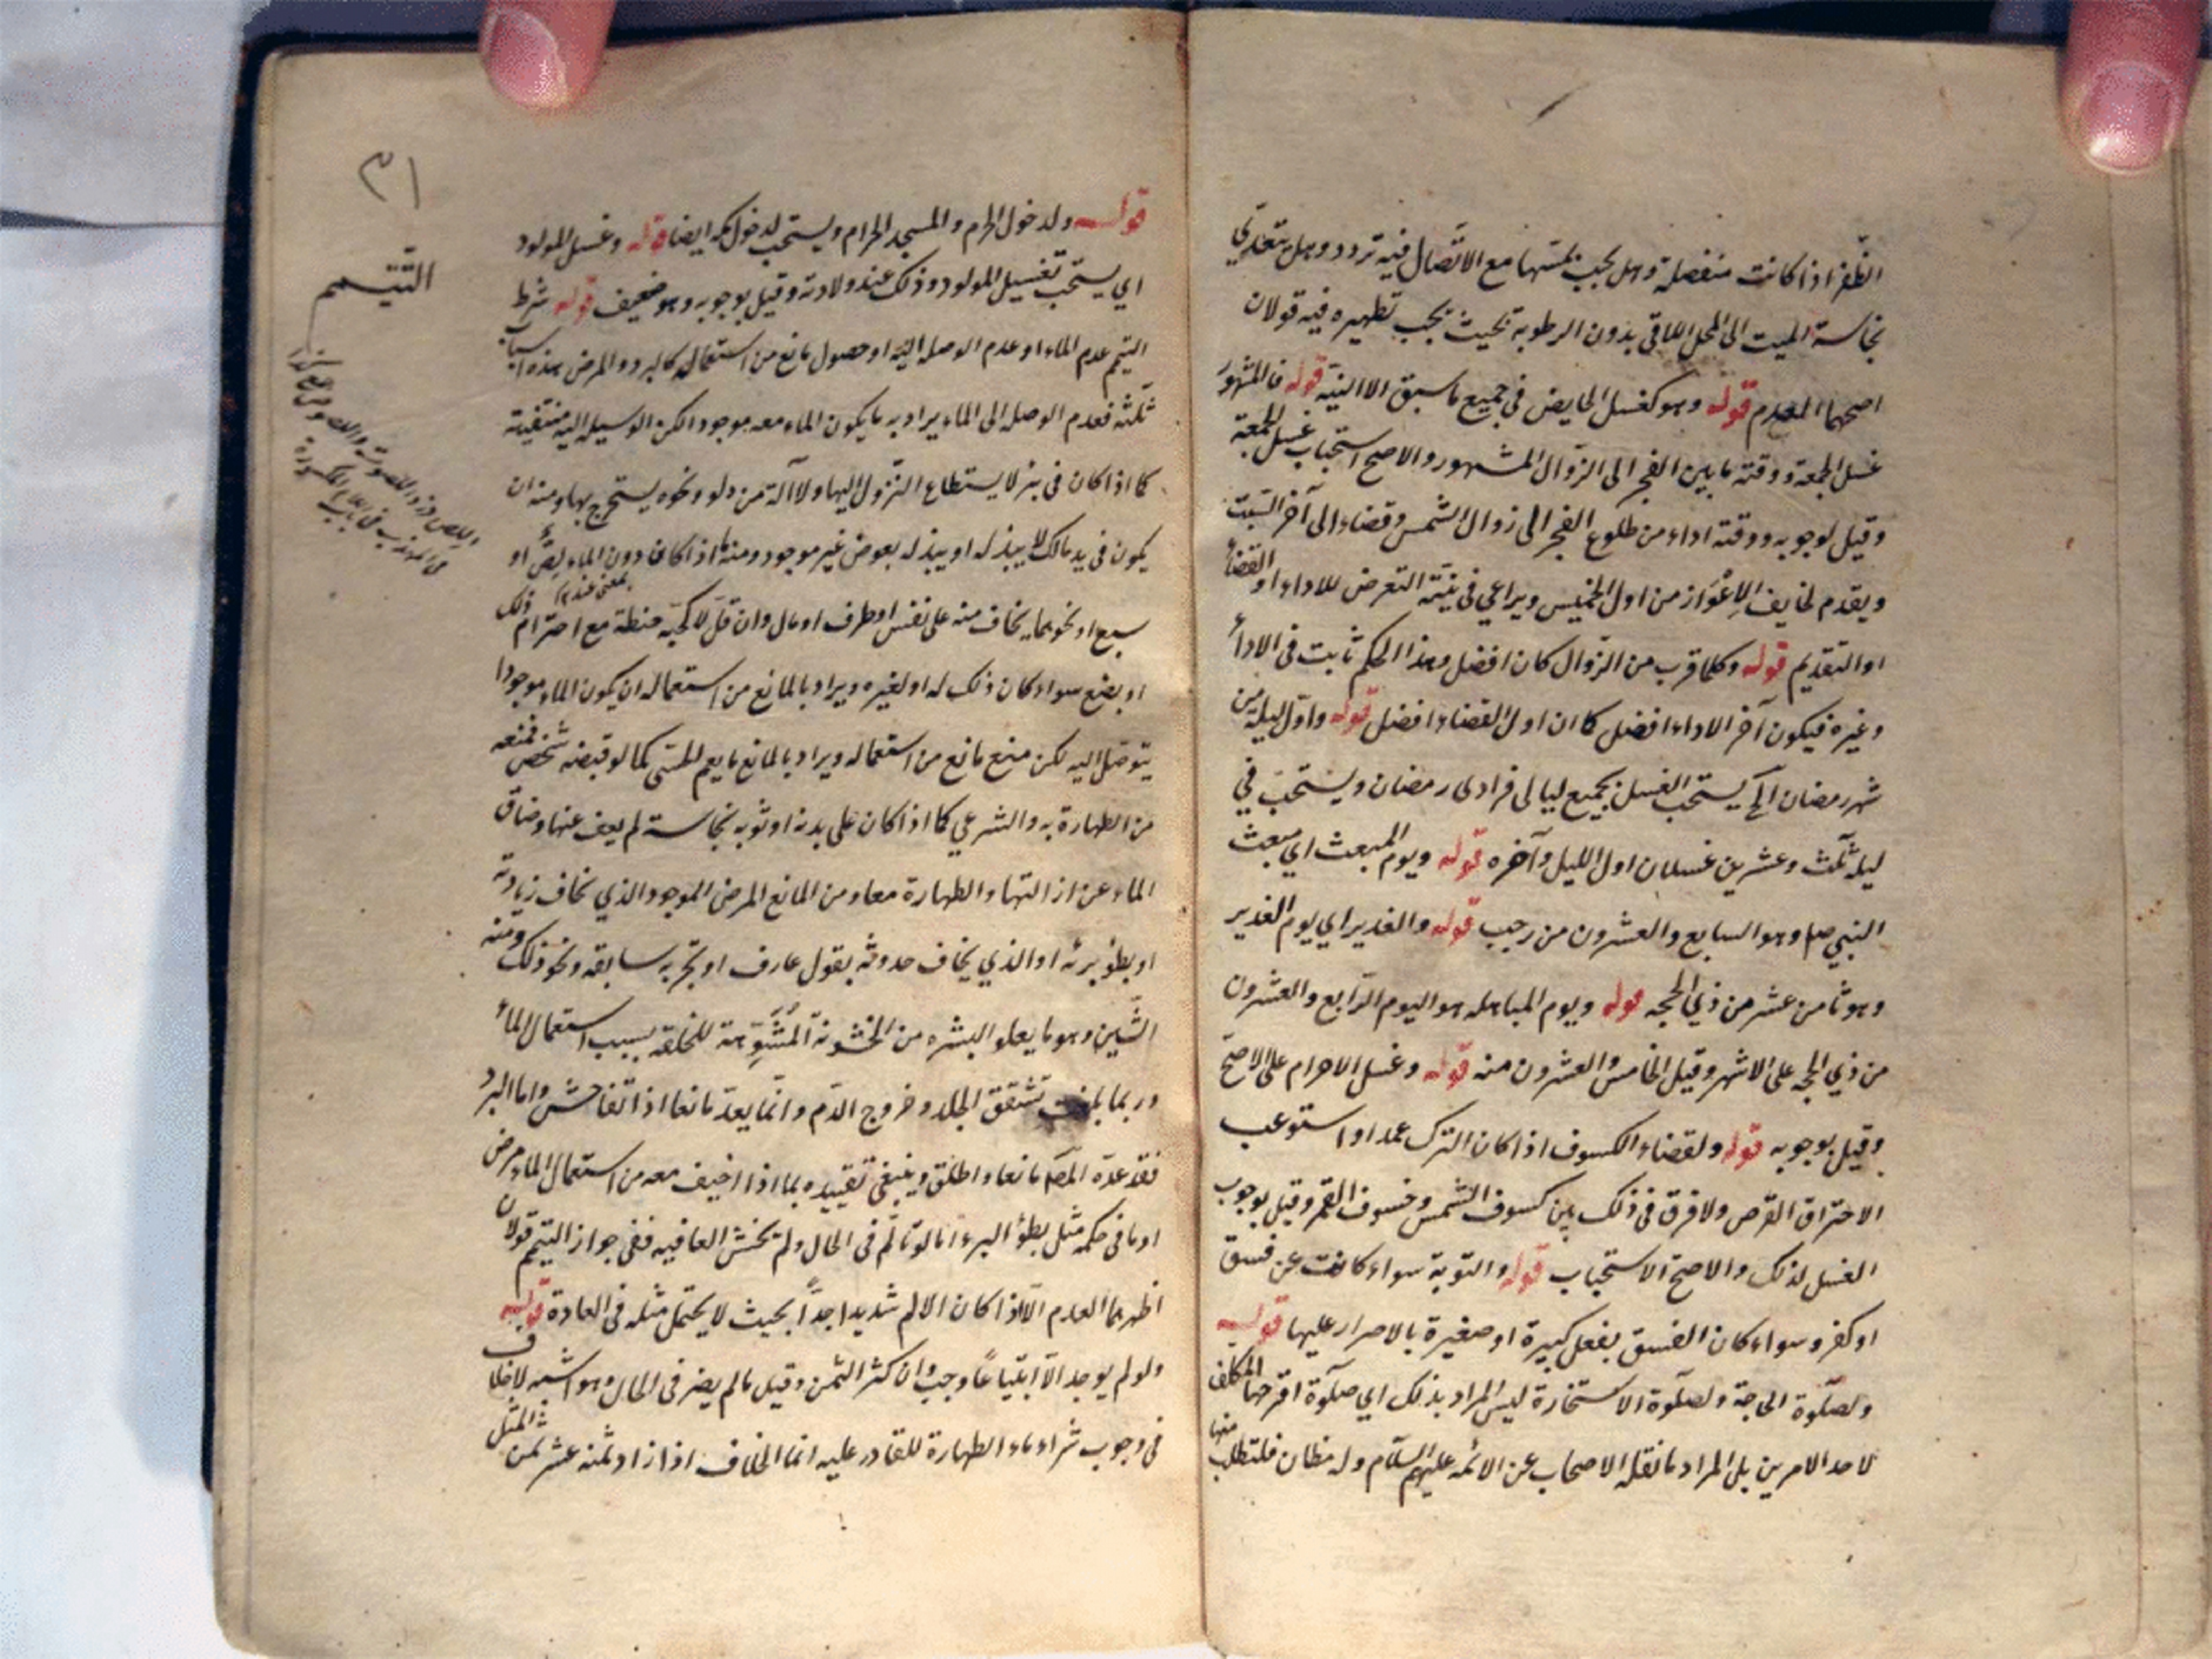 الظفر اذا كانت منفصلة وهل يجب بمسها مع الاتصال فيه تردد وهل تتعدي
نجاسة الميت الى المحل الملاقي بدون الرطوبه بحيث يجب تطهيره فيه قولان
اصحهما العدم قوله وهو كغسل الحايض في جميع ما سبق الا النية قوله فالمشهور
غسل الجمعة ووقته ما بين الفجر الى الزوال المشهور والاصح استحباب غسل الجمعة
وقيل لوجوبه ووقته اداء من طلوع الفجر الى زوال الشمس وقضاء الى آخر السبت
ويقدم لخايف الاعواز من اول الخميس ويراعي في نيته التعرض للاداء او القضاء
او التقديم قوله وكلما قرب من الزوال كان افضل وهذا الحكم ثابت في الاداء
وغيره فيكون آخر الاداء افضل كما ان اول القضاء افضل قوله واول ليلة من
شهر رمضان الخ يستحب الغسل بجميع ليالى فرادى رمضان ويستحب في
ليلة ثلث وعشرين غسلان اول الليل وآخره قوله ويوم المبعث اي مبعث
النبي ص وهو السابع والعشرون من رجب قوله والغدير اي يوم الغدير
وهو ثامن عشر من ذي الحجه قوله ويوم المباهله هو اليوم الرابع والعشرون
من ذي الحجه على الاشهر وقيل الخامس والعشرون منه قوله وغسل الاحرام على الاصح
وقيل بوجوبه قوله ولقضاء الكسوف اذا كان الترك عمدا واستوعب
الاحتراق القرص ولا فرق في ذلك بين كسوف الشمس وخسوف القمر وقيل بوجوب
الغسل لذلك والاصح الاستحباب قوله والتوبة سواء كانت عن فسق
او كفر وسواء كان الفسق بفعل كبيرة او صغيرة بالاصرار عليها قوله
ولصلوة الحاجة ولصلوة الاستخارة ليس المراد بذلك اي صلوة اقترحها المكلف
لاحد الامرين بل المراد ما نقله الاصحاب عن الائمه عليهم السلام وله مظان فلتطلب منها
٣١
التيمم
قوله ولدخول الحرم والمسجد الحرام ويستحب لدخول مكه ايضا قوله وغسل المولود
اي يستحب تغسيل المولود وذلك عند ولادته وقيل بوجوبه وهو ضعيف قوله شرط
التيمم عدم الماء او عدم الوصله اليه او حصول مانع من استعماله كالبرد والمرض هذه اسباب
ثلثه فعدم الوصله الى الماء يراد به ما يكون الماء معه موجودا لكن الوسيله اليه منتفية
كما اذا كان في بئر لا يستطاع النزول اليها ولا آلة من دلو ونحوه يستخرج بها ومنه ان
يكون في يد مالك لا يبذله او يبذله بعوض غير موجود ومنه ما اذا كان دون الماء لص او
سبع او نحوهما يخاف منه على نفس او طرف او مال وان قل لا كحبة حنطة مع احترام ذلك
او بضع سواء كان ذلك له او لغيره ويراد بالمانع من استعماله ان يكون الماء موجودا
يتوصل اليه لكن منع مانع من استعماله ويراد بالمانع ما يعم الحسي كما لو قبضه شخص فمنعه
من الطهارة به والشرعي كما اذا كان على بدنه او ثوبه نجاسة لم يعف عنها وضاق
الماء عن ازالتها والطهارة معا ومن المانع المرض الموجود الذي يخاف زيادته
او بطؤ برئه او الذي يخاف حدوثه بقول عارف او تجربه سابقه ونحو ذلك ومنه
الشين وهو ما يعلو البشره من الخشونة المشوهة للخلقه بسبب استعمال الماء
وربما بلغت تشقق الجلد وخروج الدم وانما يعد مانعا اذا تفاحش واما البرد
فقد عده المص مانعا واطلق وينبغي تقييده بما اذا خيف معه من استعمال الماء مرض
او ما في حكمه مثل بطؤ البرء اما لو تألم في الحال ولم يخش العافيه ففي جواز التيمم قولان
اظهرهما العدم الا اذا كان الالم شديدا جدا بحيث لا يحتمل مثله في العادة قوله
ولو لم يوجد الا ابتياعا وجب وان كثر الثمن وقيل ما لم يضر في الحال وهو اشبه لا خلاف
في وجوب شراء ماء الطهارة للقادر عليه انما الخلاف اذا زاد ثمنه عن ثمن المثل